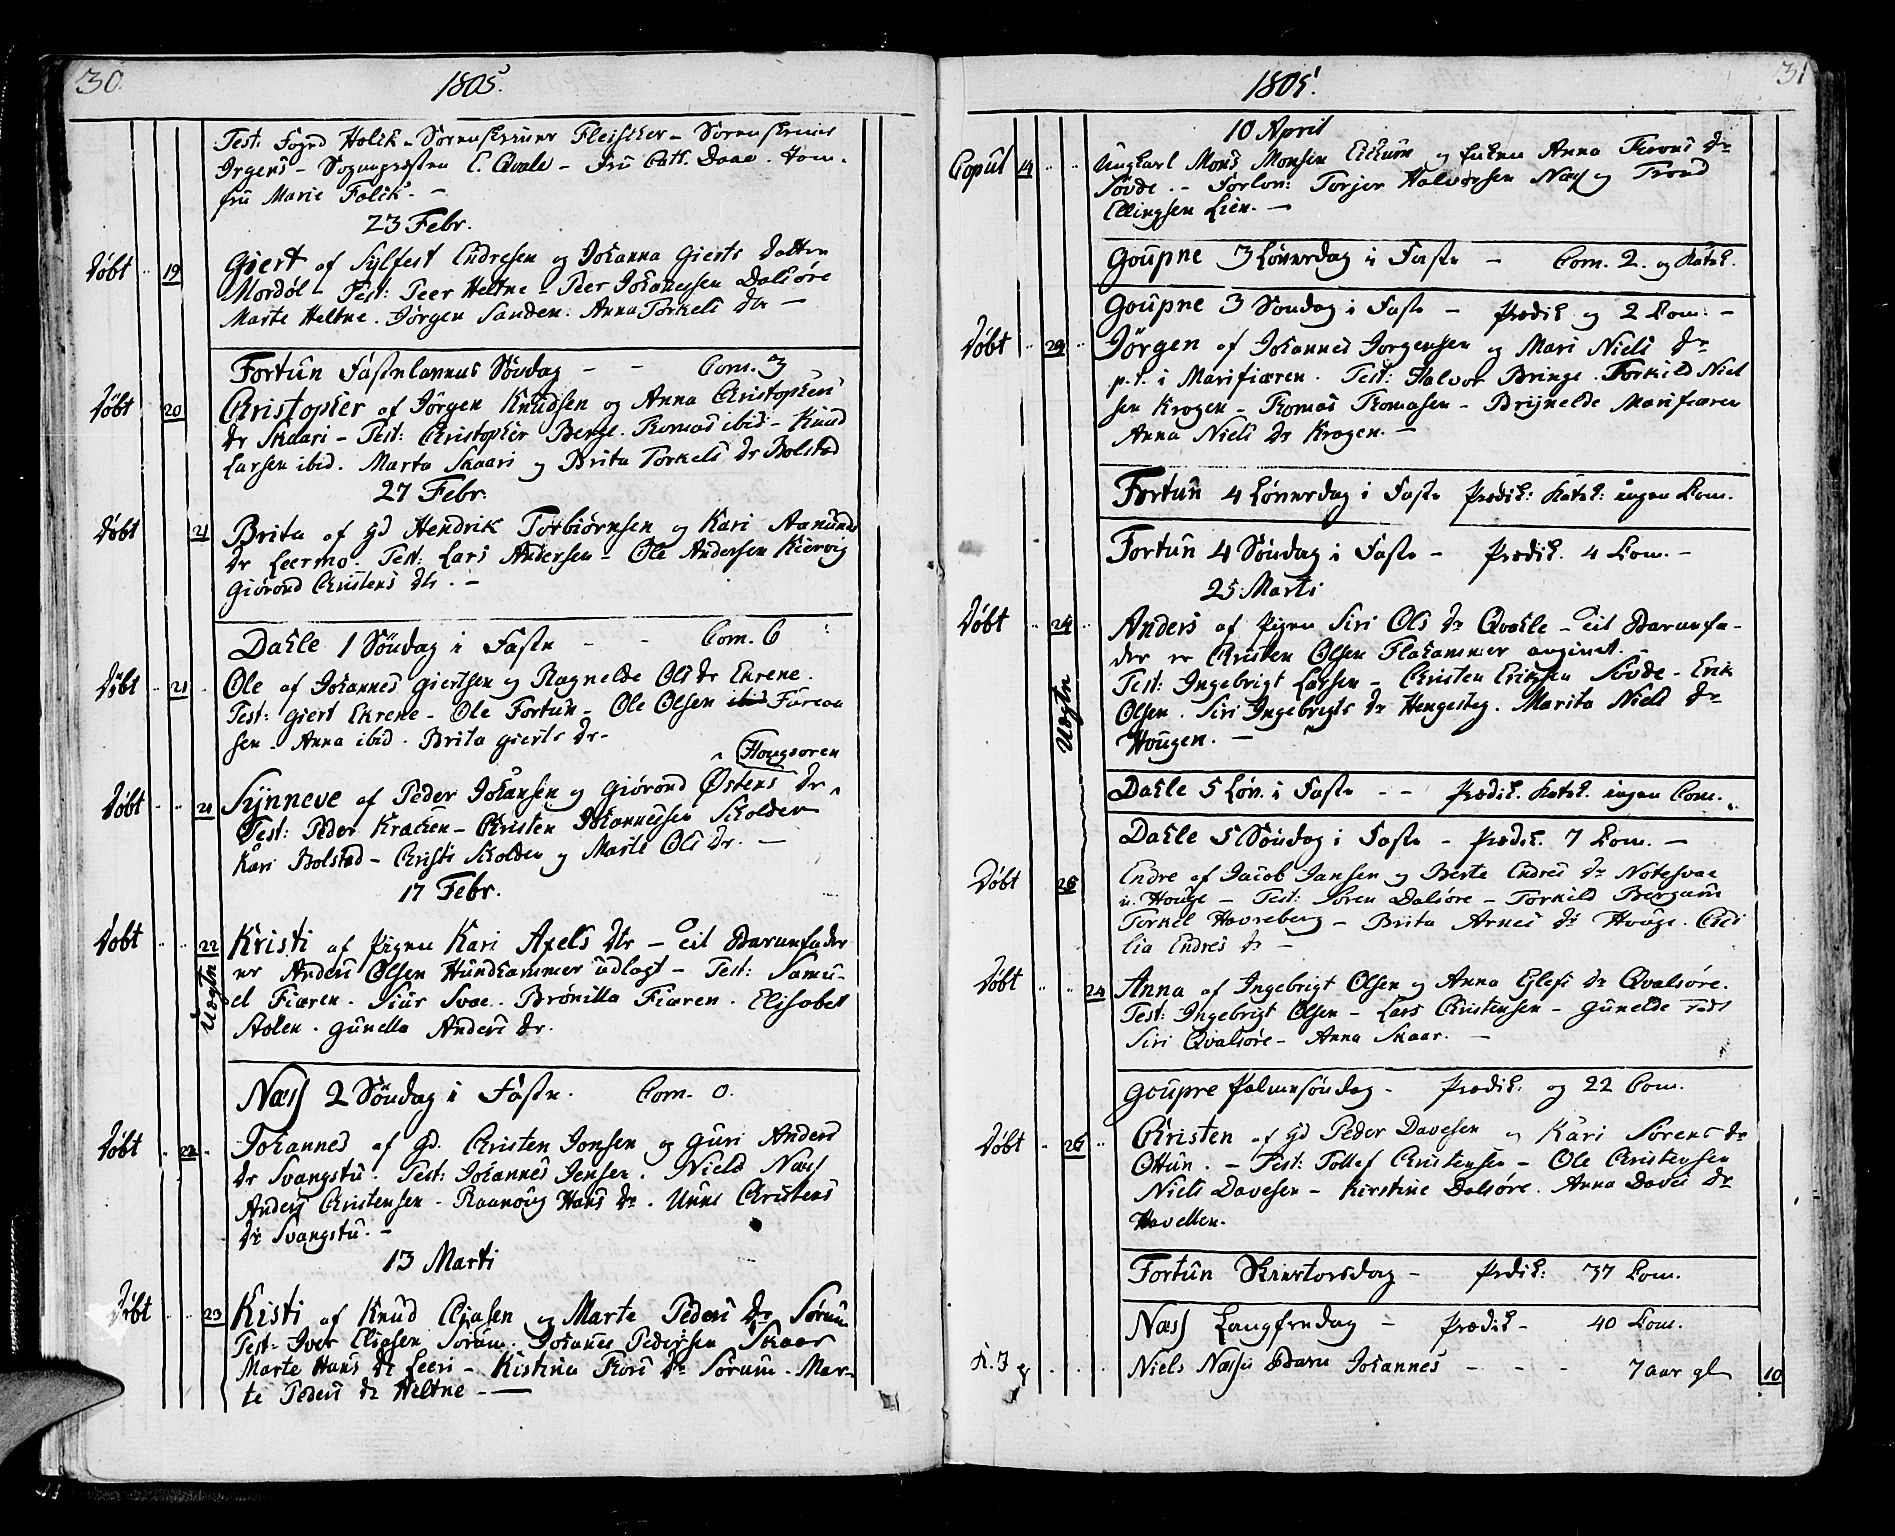 30.
1805.
Test: Fogd Holck - Sorenskriver Fleischer - Sorenskriver
Irgens - Sognpresten E. Qvale - Fru Cath. Daae. Jom-
fru Marie Falck. -
23 Febr.
Døbt 19 Giert af Sylfest Endresen og Johanna Gierts datter
Mordøl - Test: Peer Heltne - Peer Johannessen Dalsøre
Marte Heltne. Jørgen Sanden. Anna Torkels dr -
Fortun Fastelavns Søndag - - Com. 3
Døbt 20 Christopher af Jørgen Knudsen og Anna Christophers
dr Skaari - Test: Christopher Berge. Thomas ibid - Knud
Larsen ibid. Marta Skaari og Brita Torkels dr Bolstad
27 Febr.
Døbt 21 Brita af Gd Hendrik Torbiørnsen og Kari Aamunds
dr Leermo. Test. Lars Andersen - Ole Andersen Kiervig
Giørond Christens dr. -
Dahle 1 Søndag i Faste - - Com. 6
Døbt 21 Ole af Johannes Giertsen og Ragnelde Ols dr Ekrene.
Test: Giert Ekrene - Ole Fortun - Ole Olsen ibid Furaa
sen - Anna ibid. Brita Gierts dr -
Haugsøren
Døbt 21 Synneve af Peder Johansen og Giørond Østens dr
Test: Peder Kraken - Christen Johannessen Skolden
Kari Bolstad - Christi Skolden og Marte Ols dr. -
17 Febr.
Døbt 22 Kristi af Pigen Kari Axels dr - til Barnefader
er Anders Olsen Hundhammer udlagt - Test: Samu-
el Fiæren. Siur Svae. Brønilla Fiæren. Elisabet
Aasen. Gunella Anders dr.
Uægte
Næss 2 Søndag i Faste. Com. 0.
Døbt 22 Johannes af Gd. Christen Jonsen og Guri Anders
dr Svangstu. Test: Johannes Jensen. Niels Næss
Anders Christensen - Raanoug Hans dr. Unni Christens
dr Svangstu. -
13 Marti
Døbt 23 Kisti af Knud Eliasen og Marte Peders dr Sørum
Test: Iver Eliasen Sørum. Johanes Pedersen Skaar
Marte Hans dr Leeri - Kistina Thors dr Sørum. Mar-
te Peders dr Heltne -
31
1805.
10 April
Copul 14 Ungkarl Mons Monsen Eikum og Enken Anna Iverns dr
Søvde. - Forlov: Torjer Halvorsen Næss og Trond
Ellingsen Lien. -
Goupne 3 Løverdag i Faste - Com. 2. og Katek.
Goupne 3 Søndag i Faste - Prædik og 2 Com. -
Døbt 29 Jørgen af Johannes Jorgensen og Mari Niels dr
p.t. i Marifiæren. Test: Halvor Bringe. Torkild Niel
sen Krogen - Thomas Thomasen - Brynelde Marifiæren
Anna Niels dr Krogen. -
Fortun 4 Løverdag i Faste Prædik: Katek: ingen Com.
Fortun 4 Søndag i Faste - Prædik. 4 Com. -
25 Marti
Døbt 24 Anders af Pigen Siri Ols dr Qvahle - til Barnefa-
der er Christen Olsen Flahammer angivet. -
Test: Ingebrigt Larsen - Christen Eriksen Søvde - Erik
Olsen. Siri Ingebrigts dr Hengesteg. Marita Niels dr
Hougen. -
Uægte
Dahle 5 Løv. i Faste - - Prædik. Katek. ingen Com.
Dahle 5 Søndag i Faste - Prædik. 7 Com. -
Døbt 25 Endre af Jacob Jansen og Berte Endres dr Notesvae
u. Houge - Test: Søren Dalsøre - Torkild Bergum
Torkel Havreberg - Brita Arnes dr Houge. Cici
lia Endres dr -
Døbt 24 Anna af Ingebrigt Olsen og Anna Eylefs dr Qvalsøre.
Test: Ingebrigt Olsen - Lars Christensen - Gunelde
Siri Qvalsøre - Anna Skaar. -
Goupne Palmesøndag - Prædik: og 22 Com.
Døbt 26 Christen af Gd Peder Davesen og Kari Sørens dr
Ottun. - Test: Tollef Christensen - Ole Christensen
Niels Davesen - Kirstine Dalsøre. Anna Daves dr
Havellen.
Fortun Skiertorsdag - Prædik: 37 Com.
Næss Langfredag - Prædik - 40 Com.
Niels Næsses Barn Johannes - - - 7 aar gl 10